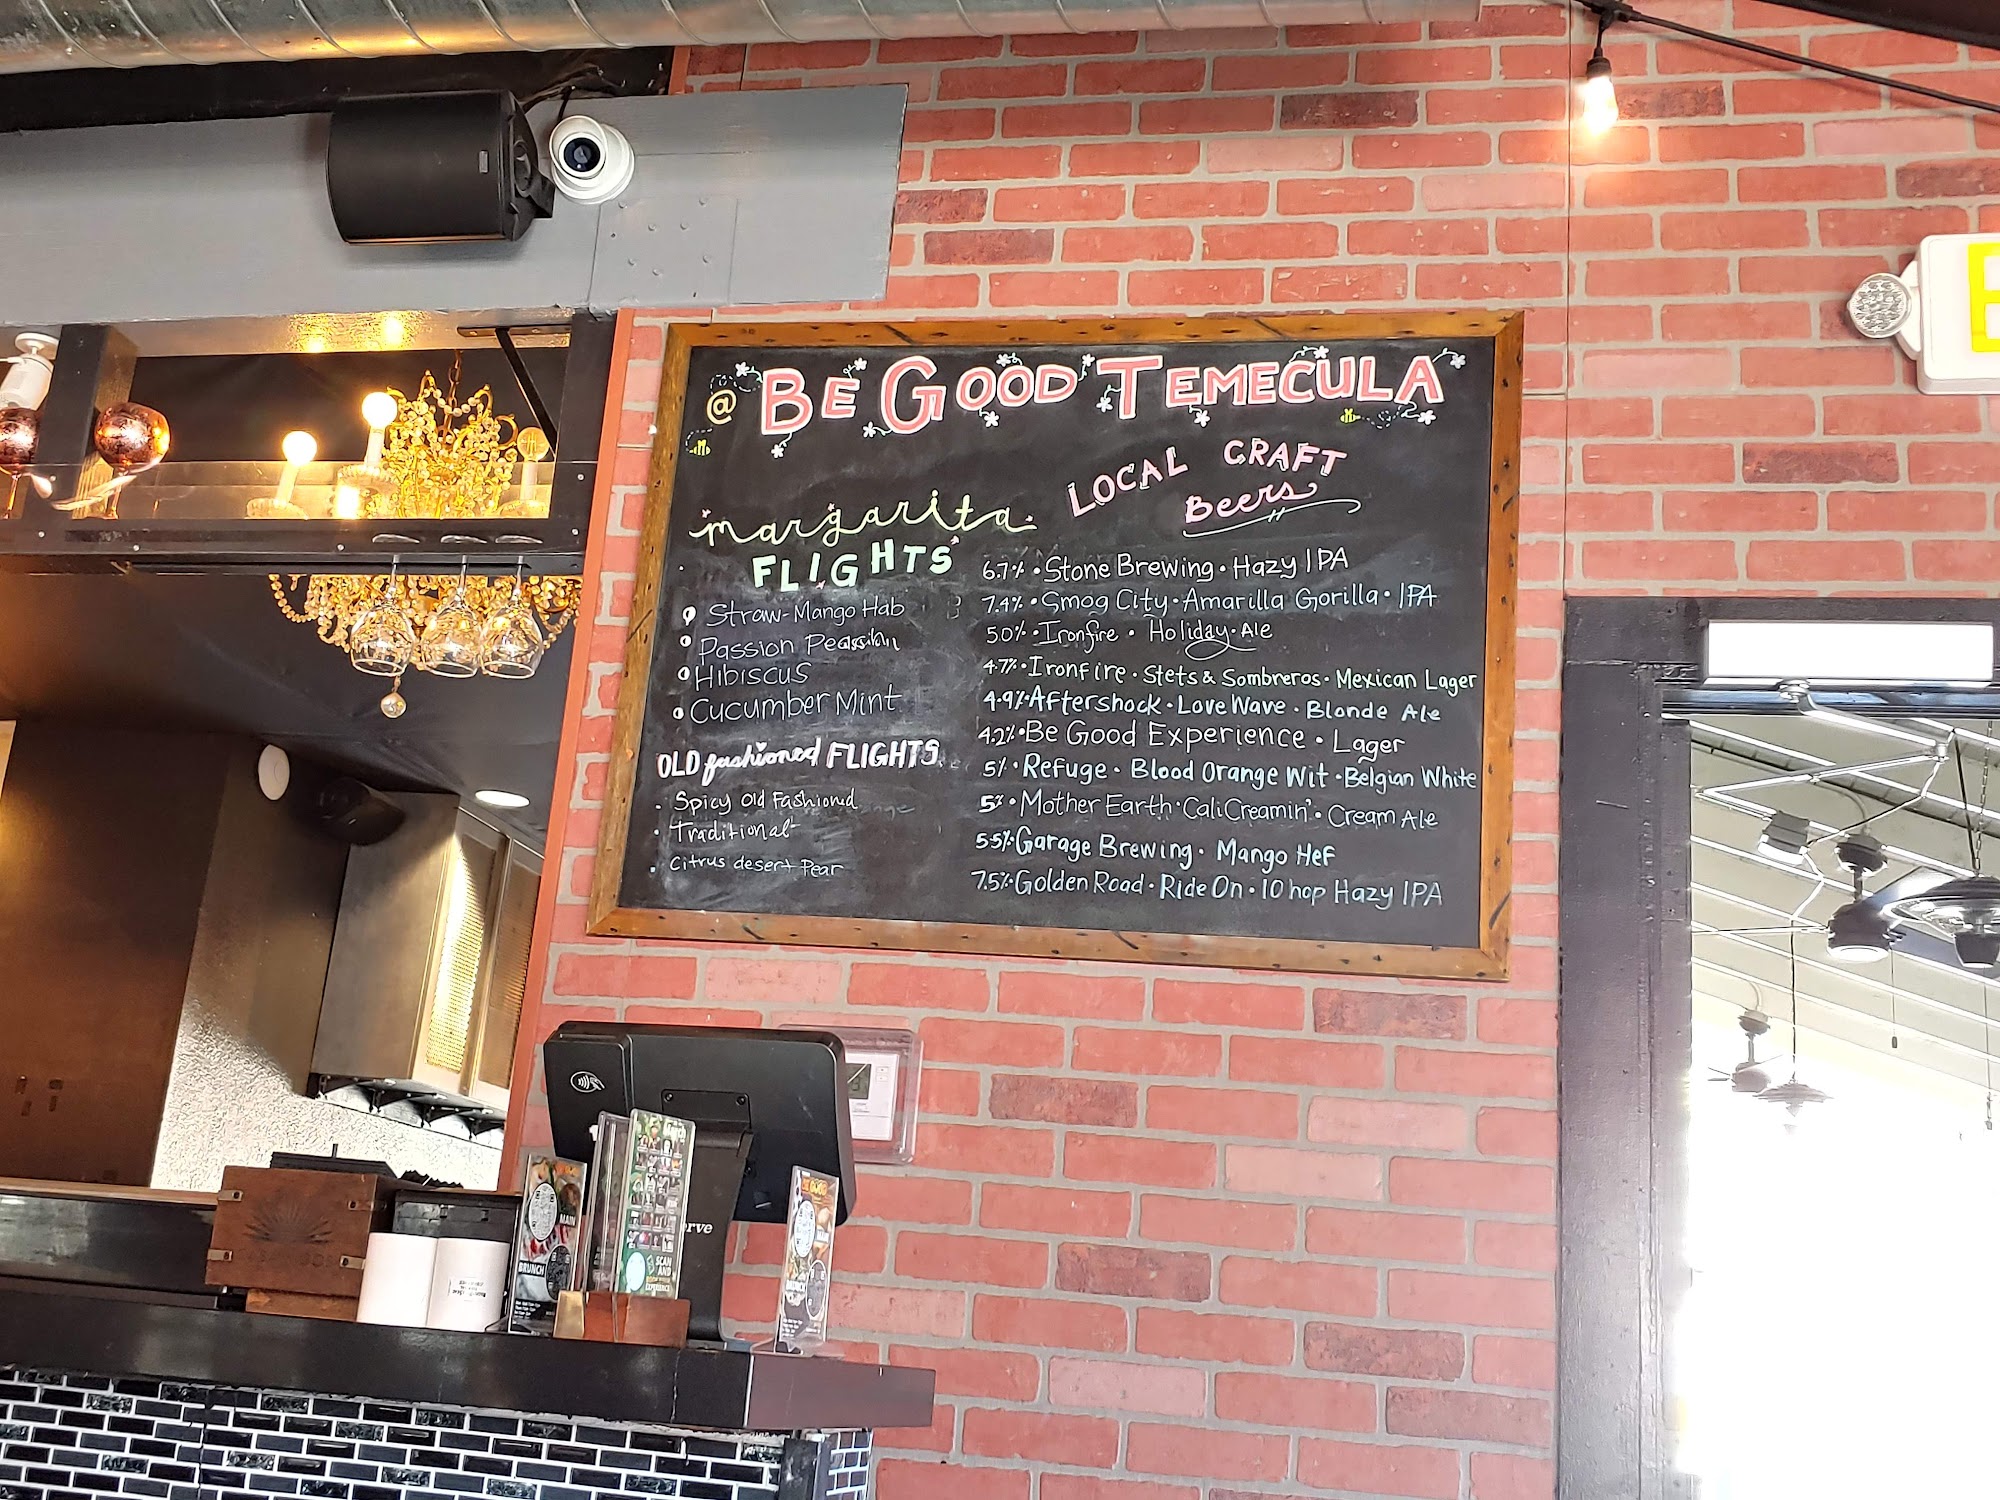 @ BE GOOD TEMECULA
margarita
FLIGHTS
Straw-Mango Hab
Passion
Hibiscus
Cucumber Mint
OLD fashioned FLIGHTS
Spicy Old Fashioned
Traditional
Citrus desert Pear
LOCAL CRAFT
Beers
6.7% • Stone Brewing • Hazy IPA
7.4% • Smog City • Amarilla Gorilla • IPA
5.0% • Ironfire • Holiday • Ale
4.7% • Ironfire • Stets & Sombreros • Mexican Lager
4.9% • Aftershock • Love Wave • Blonde Ale
4.2% • Be Good Experience • Lager
5% • Refuge • Blood Orange Wit • Belgian White
5% • Mother Earth • Cali Creamin' • Cream Ale
5.5% • Garage Brewing • Mango Hef
7.5% • Golden Road • Ride On • 10 hop Hazy IPA
E
MAIN
BRUNCH
SCAN
AND
EXPERIENCE
erve